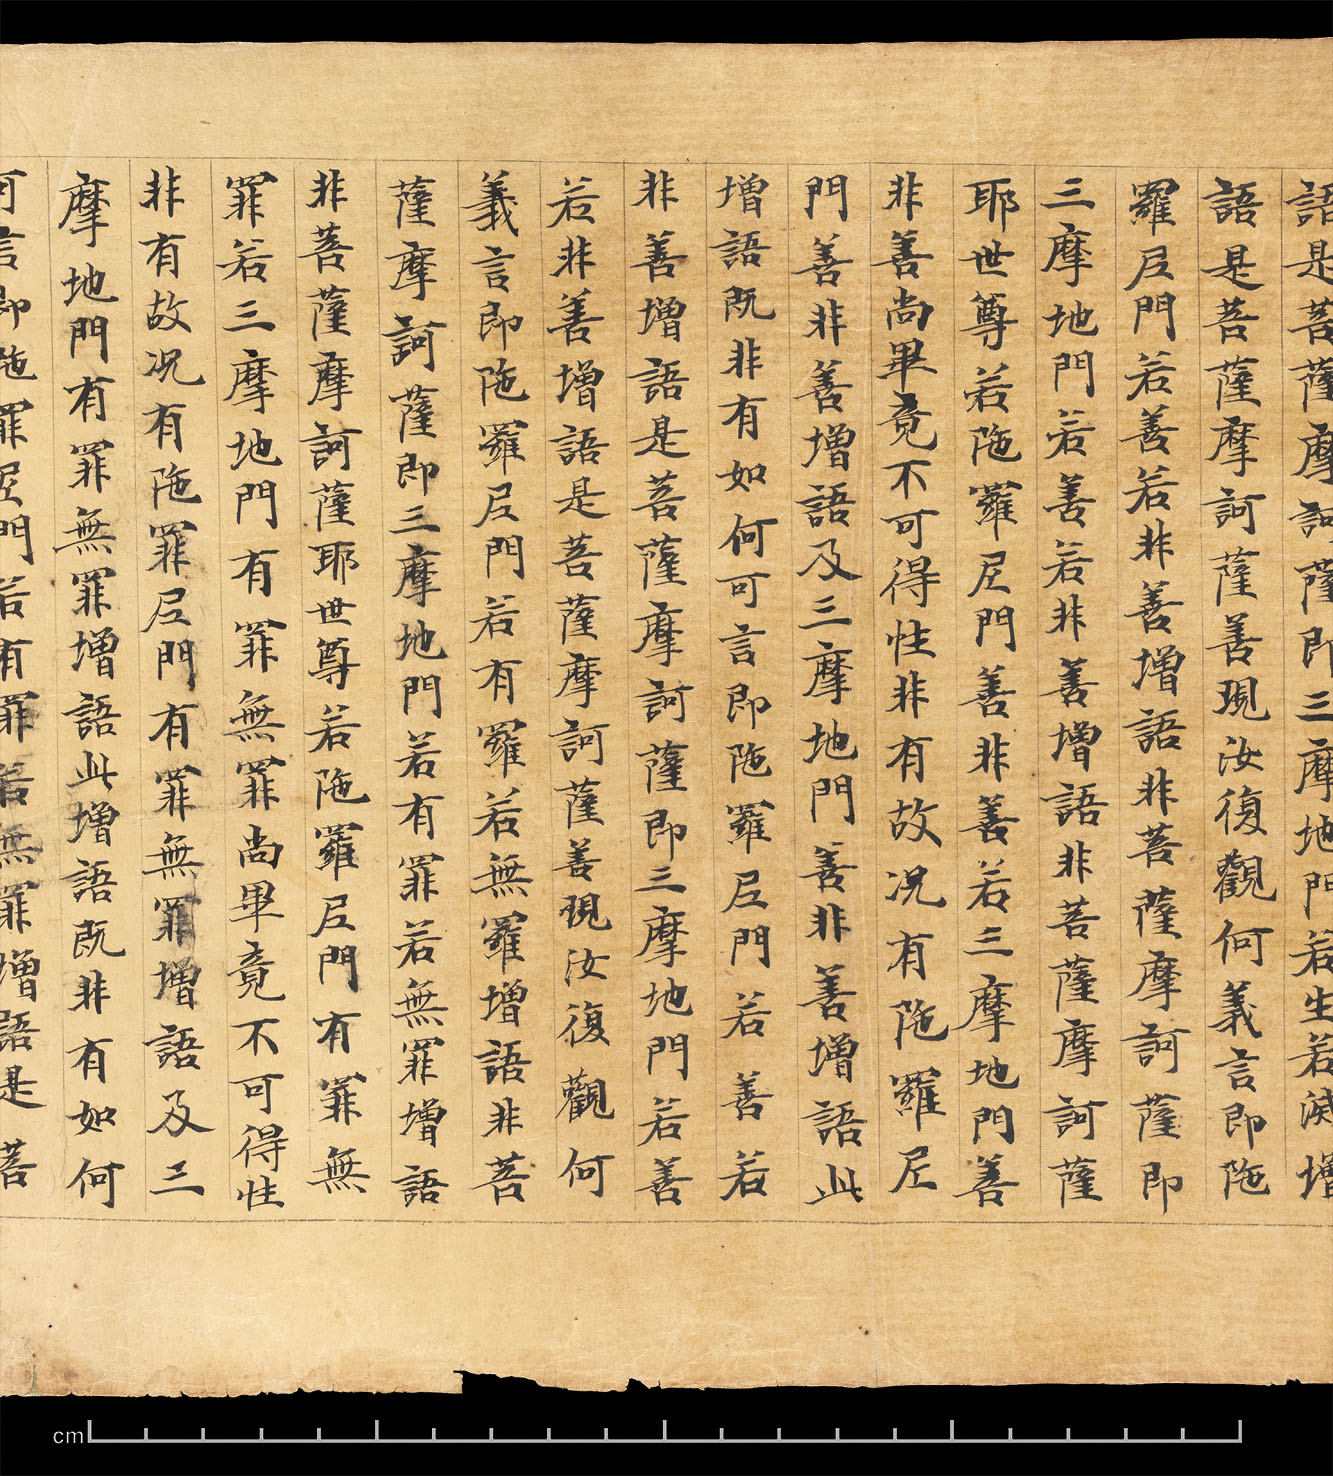 語是菩薩摩訶薩即三摩地門若生若滅增
語是菩薩摩訶薩善現汝復觀何義言即陁
羅尼門若善若非善增語非菩薩摩訶薩即
三摩地門若善若非善增語非菩薩摩訶薩
耶世尊若陁羅尼門善非善若三摩地門善
非善尚畢竟不可得性非有故况有陁羅尼
門善非善增語及三摩地門善非善增語此
增語既非有如何可言即陁羅尼門若善若
非善增語是菩薩摩訶薩即三摩地門若善
若非善增語是菩薩摩訶薩善現汝復觀何
義言即陁羅尼門若有羅若無羅增語非菩
薩摩訶薩即三摩地門若有罪若無罪增語
非菩薩摩訶薩耶世尊若陁羅尼門有罪無
罪若三摩地門有罪無罪尚畢竟不可得性
非有故况有陁罪尼門有罪無罪增語及三
摩地門有罪無罪增語此增語既非有如何
可言即陁罪尼門若有罪若無罪增語是菩
cm